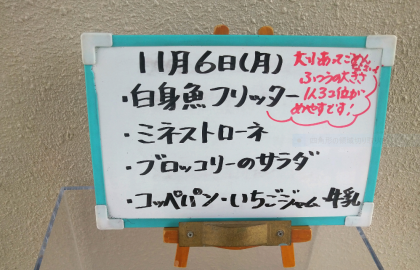 11月6日(月)
・白身魚フリッター
・ミネストローネ
・ブロッコリーのサラダ
・コッペパン・いちごジャム 牛乳
大小あってごめんなさい
ふつうの大きさ
1人3コ位が
めやすです!